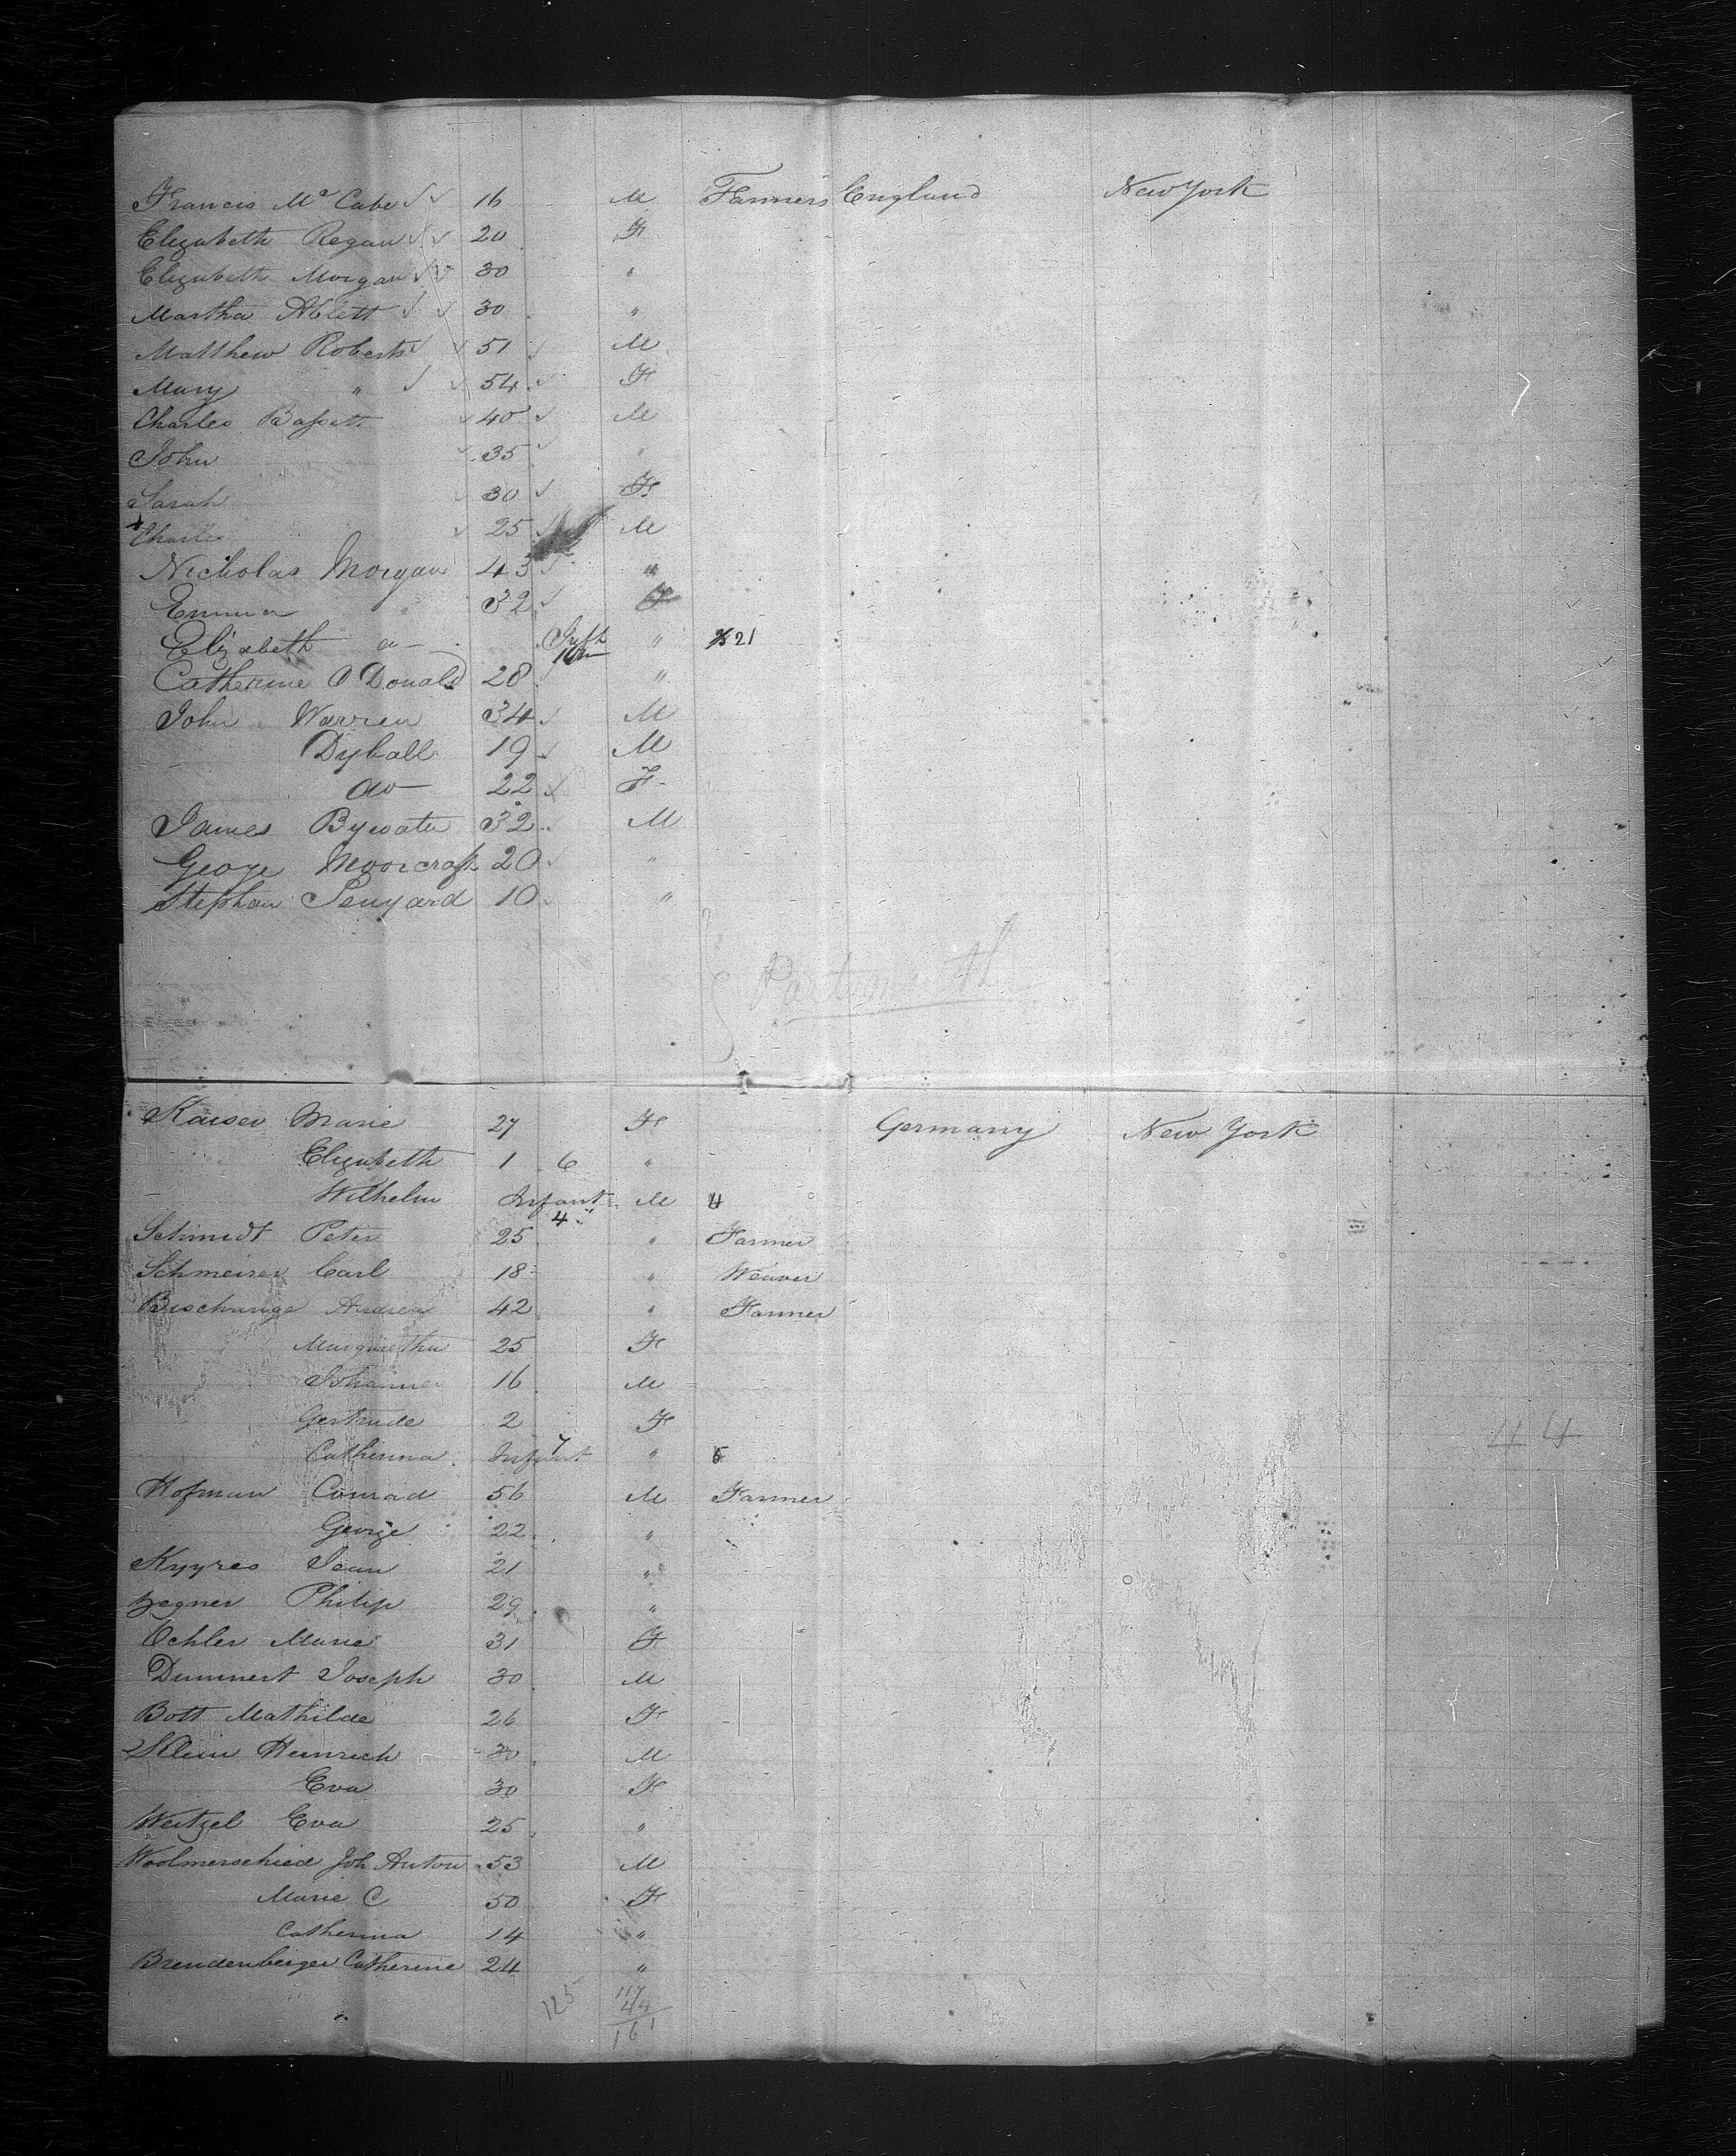 Francis Mc Cabe 16 M Farmers England New York
Elizabeth Regan 20 F
Elizabeth Morgan 30 "
Martha Ablett 30 "
Matthew Roberts 51 M
Mary " 54 F
Charles Bassett 40 M
John 35 "
Sarah 30 F
Charles 25 M
Nicholas Morgan 43 "
Emma " 32 F
Elizabeth " 21
Catherine O Donald 28 "
John Warren 34 M
Dyball 19 M
do 22 F
James Bywater 32 M
George Moorcraft 20 "
Stephen Penyard 10 "
Portsmouth
Kaiser Marie 27 F Germany New York
Elizabeth 1 6 "
Wilhelm Infant 4 M 4
Schmidt Peter 25 " Farmer
Schmeirer Carl 18 " Weaver
42 " Farmer
Margaretha 25 F
Johannes 16 M
Gertrude 2 F
Catherina Infant 7 " 5
44
Hofman Conrad 56 M Farmer
George 22 "
Kyyres Jean 21 "
Philip 29 "
Oehler Marie 31 F
Dummert Joseph 30 M
Bott Mathilde 26 F
Klein Heinrich 30 M
Eva 30 F
Weitzel Eva 25 "
Woolmerschied Joh Anton 53 M
Marie C 50 F
Catherina 14 "
Brendenberger Catherine 24 "
125 117
44
161